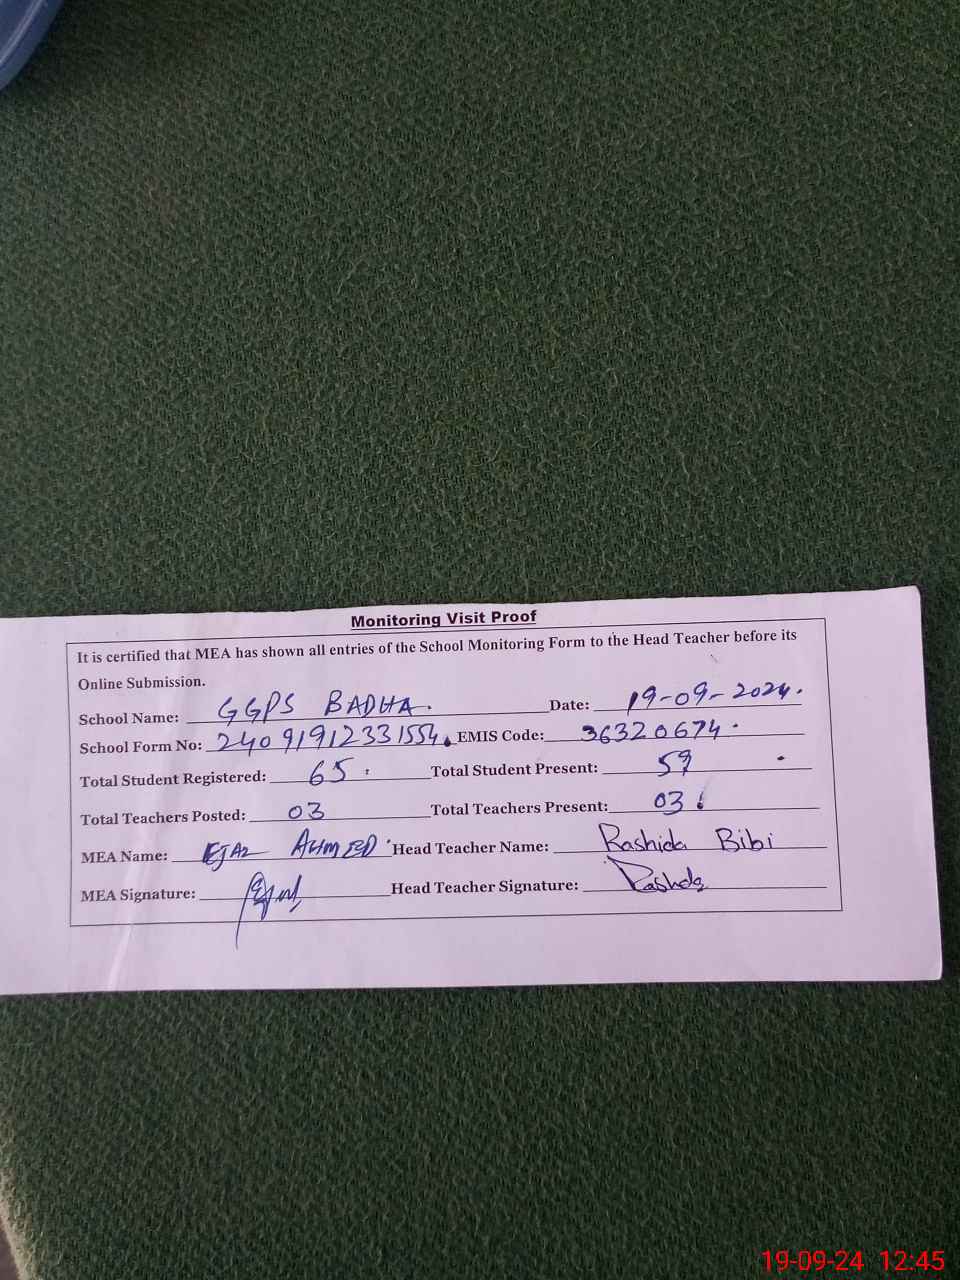 Monitoring Visit Proof
It is certified that MEA has shown all entries of the School Monitoring Form to the Head Teacher before its
Online Submission.
School Name: GGPS BADHA. Date: 19-09-2024.
School Form No: 24091912331554. EMIS Code: 36320674.
Total Student Registered: 65 Total Student Present: 59
Total Teachers Posted: 03 Total Teachers Present: 03
MEA Name: EJAZ AHMED Head Teacher Name: Rashida Bibi
MEA Signature: Head Teacher Signature: Rashda
19-09-24 12:45